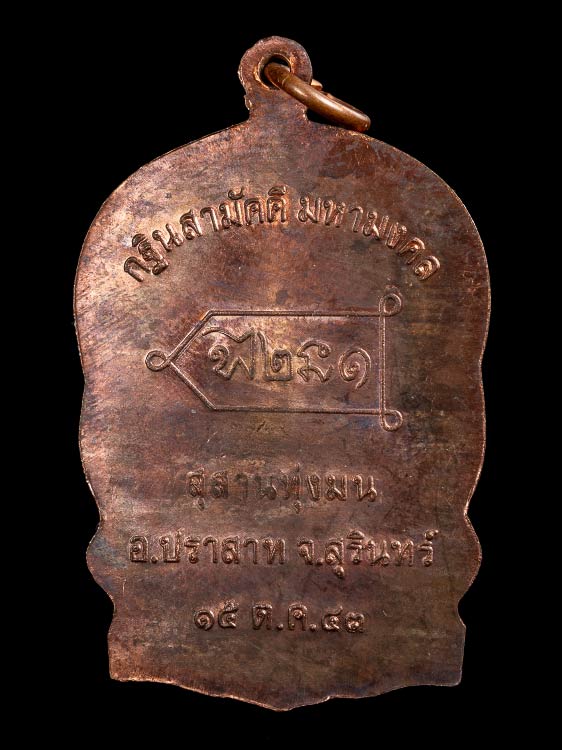 กฐินสามัคคี มหามงคล
สุสานทุ่งมน
อ.ปราสาท จ.สุรินทร์
๑๕ ต.ค.๔๓